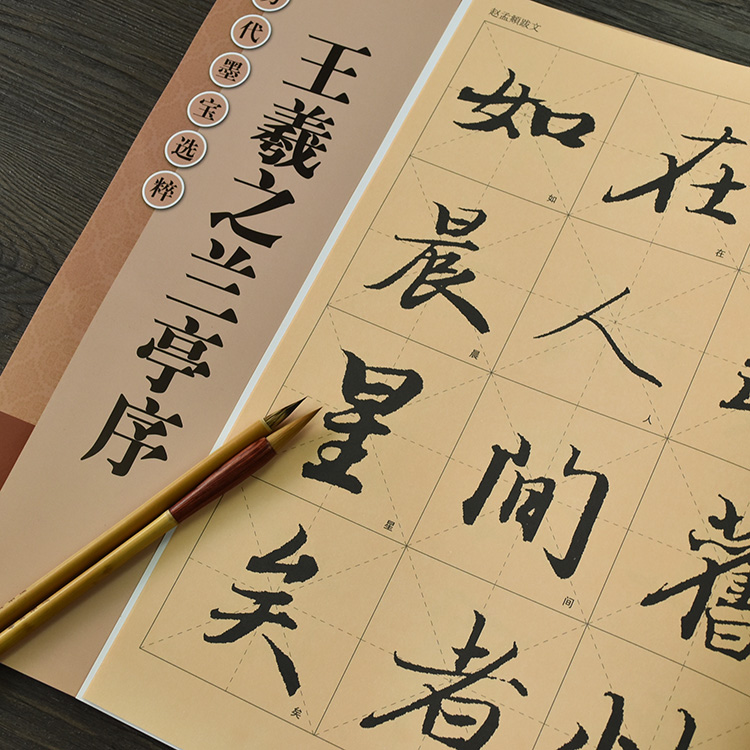 代墨宝选粹
王羲之兰亭序
赵孟頫跋文
舊
在人間者
在人间
如晨星矣
如晨星矣